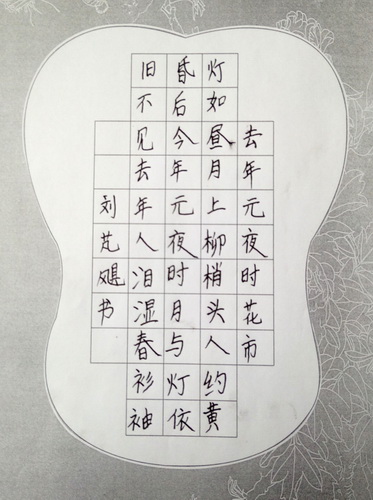 去年元夜时花市
灯如昼月上柳梢头人约黄
昏后今年元夜时月与灯依
旧不见去年人泪湿春衫袖
刘芃飓书